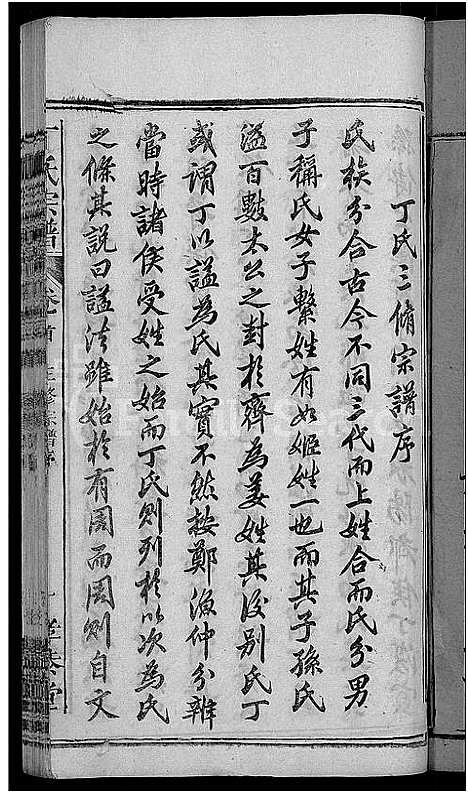 丁氏三脩宗譜序
氏族分合古今不同三代而上姓合而氏分男
子稱氏女子繫姓有如姬姓一也而其子孫氏
溢百數太公之封於齊為姜姓其後別氏丁
或謂丁以謚為氏其實不然按鄭漁仲分辨
當時諸侯受姓之始而丁氏則列於以次為氏
之條其說曰謚法雖始於有周而周則自文
丁氏宗譜 卷首 三修宗譜序